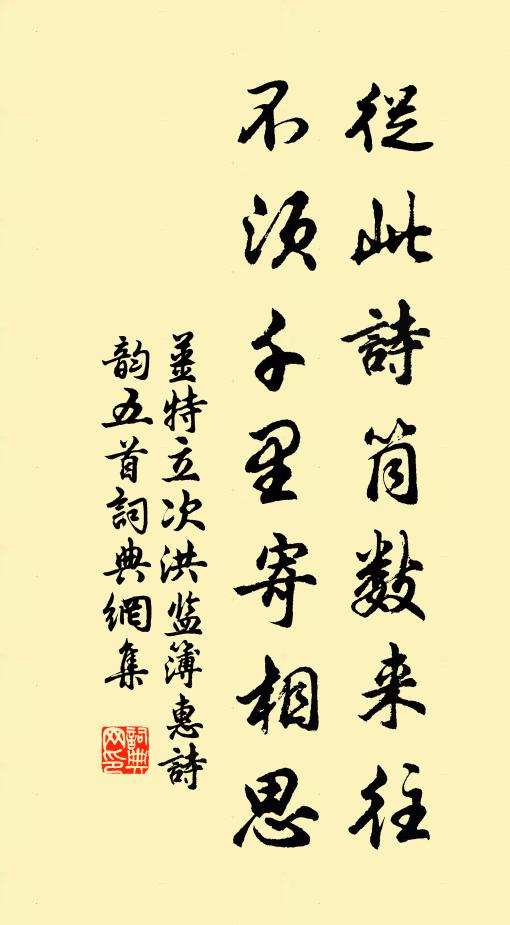 從此詩筒数来往
不須千里寄相思
薑特立次洪监簿惠詩
韵五首詞典網集
詞典
网印